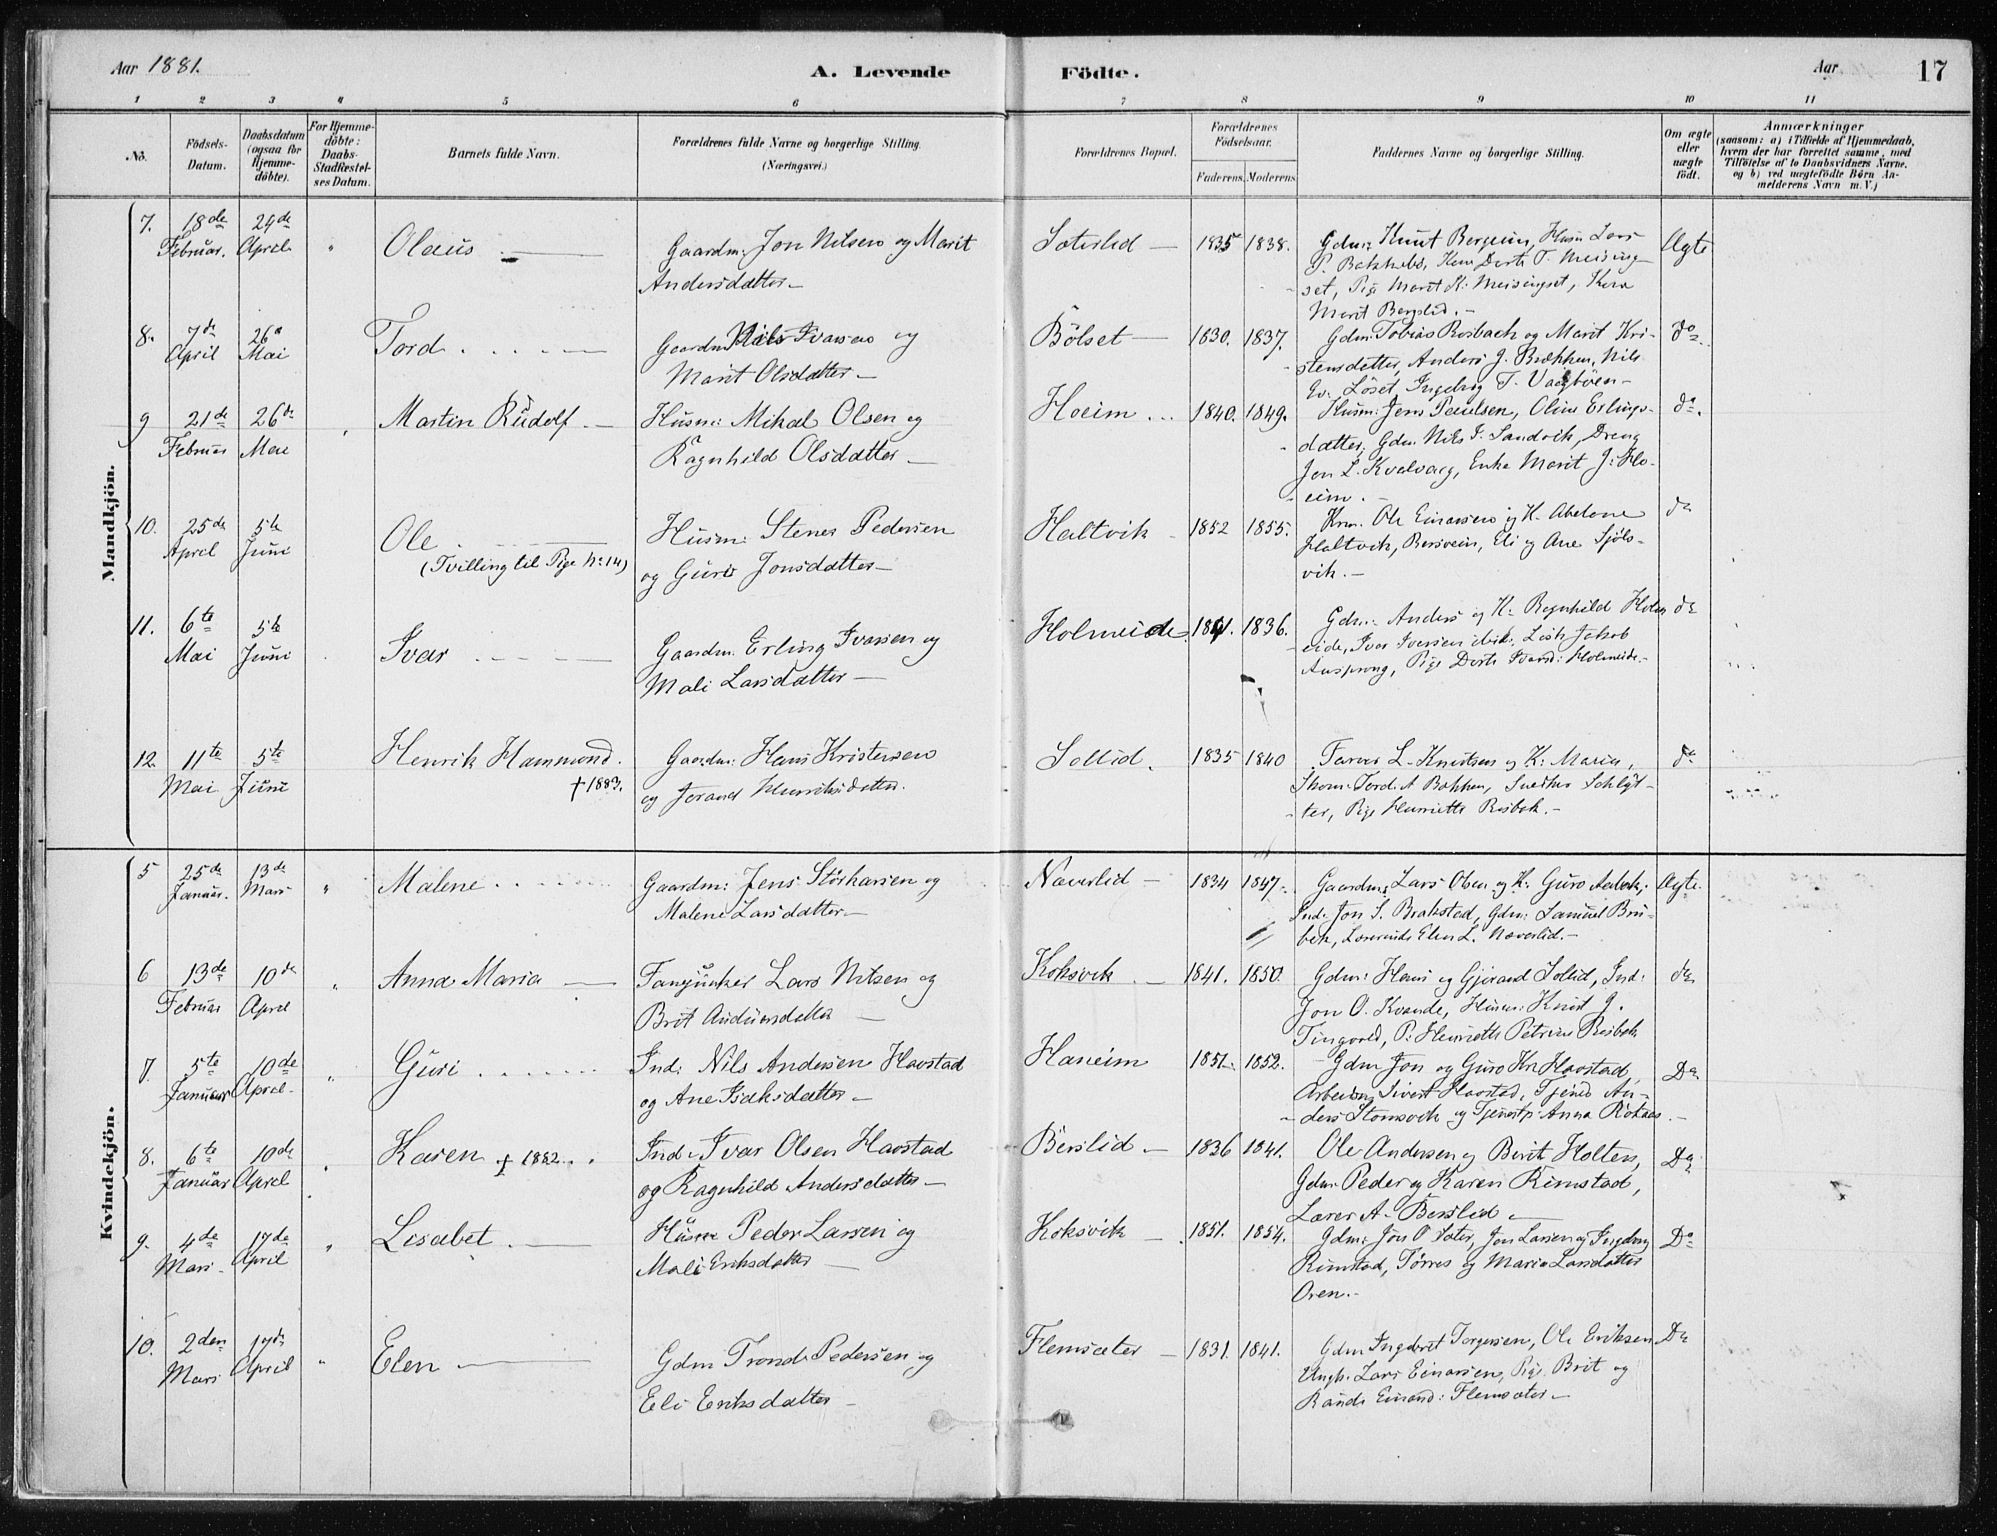 Aar 1881.
A. Levende
Födte.
Aar
17
1 2 3 4 5 6 7 8 9 10 11
No.
Födsels-
Datum.
Daabsdatum
(ogsaa for
Hjemme-
döbte).
For Hjemme-
döbte:
Daabs-
Stadfæstel-
ses Datum.
Barnets fulde Navn.
Forældrenes fulde Navne og borgerlige Stilling.
(Næringsvei.)
Forældrenes Bopæl.
Forældrenes
Födselsaar.
Faderens. Moderens.
Faddernes Navne og borgerlige Stilling.
Om ægte
eller
uægte
födt.
Anmærkninger
(saasom: a) i Tilfælde af Hjemmedaab,
hvem der har forrettet samme, med
Tilföielse af to Daabsvidners Navne,
og b) ved uægtefödte Børn An-
melderens Navn m. V.)
Mandkjön.
7. 18de 24de
Februar. April " Olaus — Gaardm: Jon Nilsen og Marit
Andersdatter — Sæterlid — 1835 1838. Gdm: Knut Bergeim, Husm Lars
P. Bakken, Kone Dorte T. Meising-
set, Pige Marit K. Meisingset, Kone
Marit Bergslid. — Ægte
8. 7de 26de
April Mai Tord . . . — Gaardm Nils Ivarsen og
Marit Olsdatter — Bölset — 1830. 1837. Gdm: Tobias Rosbach og Marit Kri-
stensdatter, Anders J. Bækken, Nils
Ev. Löset, Ingebrg T. Vaagböen — do.
9 21de 26de
Februar Mai Martin Rudolf. — Husm: Mikal Olsen og
Ragnhild Olsdatter — Hoeim . . . 1840. 1849. Husm: Jens Paulsen, Oline Erlings-
datter, Gdm. Nils J. Sandvik, Dreng
Jon L. Kvalvaag, Enke Marit J. Ho-
eim. — do.
10. 25de 5te
April Juni Ole . . . —
(Tvilling til Pige No: 14) Husm: Stener Pedersen
og Guri Jonsdatter — Haltvik 1852 1855. Krm. Ole Einarsen og K. Abelone
Haltvik, Bersvein, Eli og Ane Sjöls-
vik. — do
11. 6te 5te
Mai Juni Ivar . . . — Gaardm. Erling Ivarsen og
Mali Larsdatter — Holmeide 1841. 1836. Gdm: Anders og K: Ragnhild Holm
eide, Ivar Iversen ibid:, Jakob
Ansprang, Pige Dorte Ivarsd: Holmeide. — do
12. 11te 5te
Mai Juni Henrik Hammond.
† 1883. Gaardm: Hans Kristensen
og Jorand Henriksdatter. Sollid. 1835 1840 Farver L. Knutsen og K: Maria,
Skom: Tord A Bakken, Snedker Schlyt-
ter, Pige Henriette Rosbak. — do
Kvindekjön.
5 25de 13de
Januar. Mars " Malene . . . . Gaardm: Jens Störkersen og
Malene Larsdatter — Naverlid — 1834 1847. Gaardm: Lars Olsen og K: Guro Aabak,
Ind: Jon S. Brakstad, Gdm: Samuel Bru-
bek, Lærerinde Elen L. Naverlid. — Ægte.
6 13de 10de
Februar April " Anna Maria — Fanejunker Lars Nilsen og
Brit Andersdatter — Koksvik . — 1841. 1850. Gdm: Hans og Gjørand Sollid, Ind:
Jon O. Kvande, Husm: Knut J.
Tingvold, P: Henriette Petrine Rosbak do
7. 5te 10de
Januar April. " Guri . . . . . Ind: Nils Andersen Havstad
og Ane Isaksdatter — Haneim 1851. 1852. Gdm Jon og Guro Kr Havstad
Arbeider Sivert Havstad, Tjener An-
ders Stomsvik og Tjenestp: Anna Roknes. — Do
8. 6te 10de
Januar April " Karen † 1882. . Ind. Ivar Olsen Havstad
og Ragnhild Andersdatter — Berslid — 1836 1841. Ole Andersen og Berit Holten,
Gdm: Peder og Karen Rimstad,
Lærer A. Berslid — Do
9. 4de 17de
Mars April " Lisabet . — Husm Peder Larsen og
Mali Eriksdatter — Koksvik — 1851. 1854. Gdm: Jon O Sæter, Jon Larsen og Ingeborg
Rimstad, Törres og Maria Larsdatter
Oren. — Do
10. 2den 17de
Mars April " Elen — Gdm Trond Pedersen og
Eli Eriksdatter — Flemsæter — 1831. 1841. Gdm Ingebret Torgersen, Ole Eriksen
Ungk. Lars Einarsen, Pige Brit og
Randi Einarsd: Flemsæter — Do